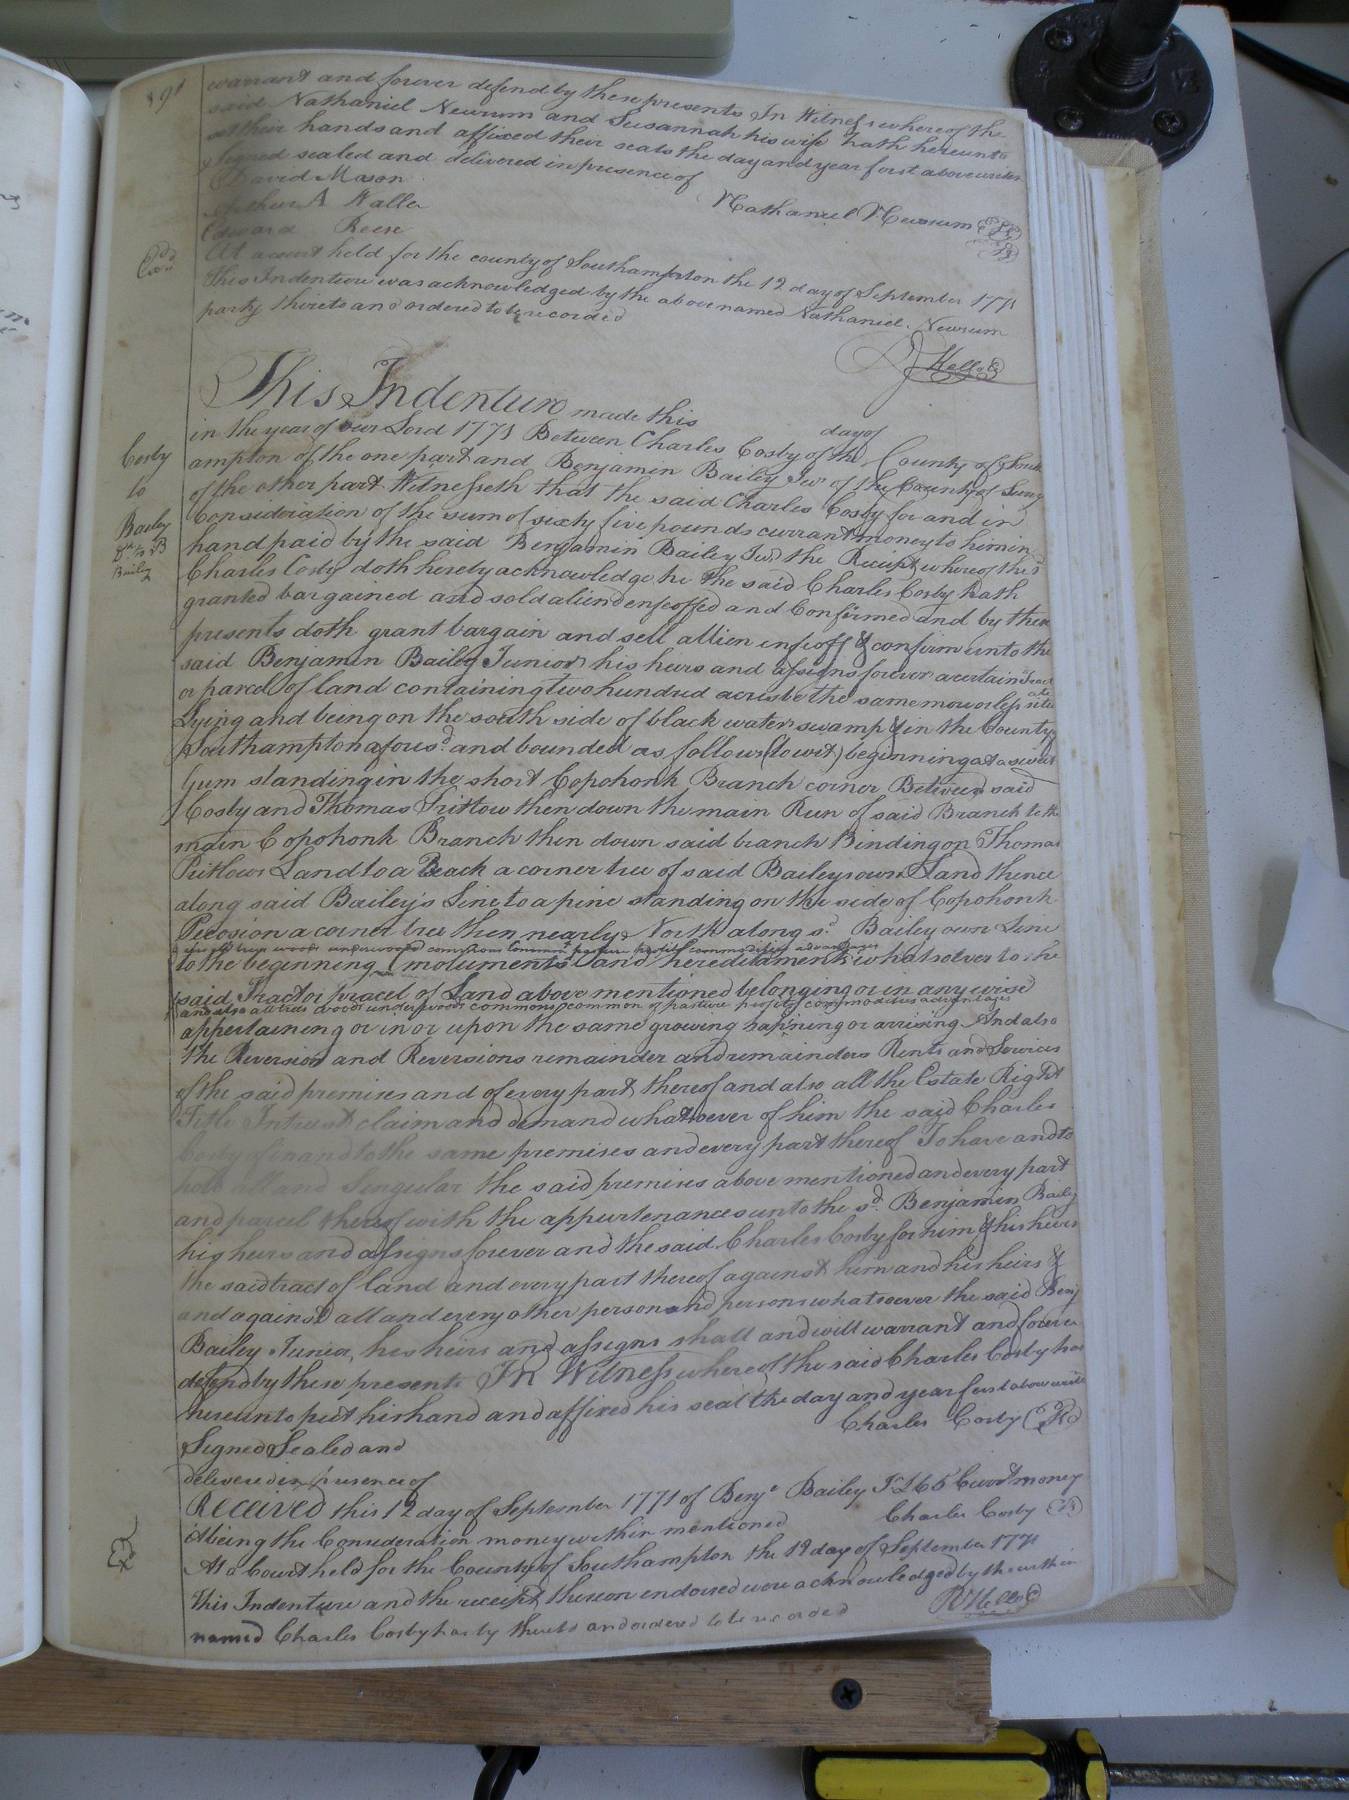 warrant and forever defend by these presents In Witness whereof the
said Nathaniel Newsum and Susannah his wife hath hereunto
set their hands and affixed their seals the day and year first above writen
signed sealed and delivered in presence of
David Mason
Nathaniel Newsum
Arthur A Waller
Edward Reese
At a court held for the county of Southampton the 12 day of September 1771
This Indenture was acknowledged by the above named Nathaniel Newsum
party thereto and ordered to be recorded
Cosby
to
Bailey
Bailey
This Indenture made this day of
in the year of our Lord 1771 Between Charles Cosby of the County of South
ampton of the one part and Benjamin Bailey Junr of the County of Surry
of the other part Witnesseth that the said Charles Cosby for and in
Consideration of the sum of sixty five pounds currant money to him in
hand paid by the said Benjamin Bailey Junr the Receipt whereof the sd
Charles Cosby doth hereby acknowledge he the said Charles Cosby hath
granted bargained and sold aliend enfeoffed and Confirmed and by these
presents doth grant bargain and sell allien infeoff & confirm unto the
said Benjamin Bailey Junior his heirs and assigns forever a certain Tract
or parcel of land containing two hundred acres be the same more or less situate
Lying and being on the south side of black water swamp & in the County of
Southampton aforesd and bounded as follows (to wit) beginning at a sweet
Gum standing in the short Copohonk Branch corner Between said
Cosby and Thomas Pritlow then down the main Run of said Branch to the
main Copohonk Branch then down said branch Binding on Thomas
Pritlows Land to a Beach a corner tree of said Baileys own Land thence
along said Bailey's Line to a pine standing on the side of Copohonk
Pecosion a corner tree then nearly North along sd Bailey own Line
to the beginning moluments and hereditaments whatsoever to the
said Tract or pracel of Land above mentioned belonging or in any wise
and also all trees woods underwoods commons common of pasture profits commodities advantages
appertaining or in or upon the same growing hapning or arrising And also
the Reversion and Reversions remainder and remainders Rents and Services
of the said premises and of every part thereof and also all the Estate Right
Title Interest claim and demand whatsoever of him the said Charles
Cosby of in and to the same premises and every part thereof To have and to
hold all and Singular the said premises above mentioned and every part
and parcel thereof with the appurtenances unto the sd Benjamin Baily
his heirs and assigns forever and the said Charles Cosby for him & his heirs
the said tract of land and every part thereof against him and his heirs &
and against all and every other person and persons whatsoever the said Benj
Bailey Junior, his heirs and assigns shall and will warrant and forever
defend by these presents In Witness whereof the said Charles Cosby has
hereunto put his hand and affixed his seal the day and year first above writen
Charles Cosby
Signed Sealed and
delivered in presence of
Received this 12 day of September 1771 of Benja Bailey J £65 Currt money
it being the Consideration money within mentioned Charles Cosby
At a Court held for the County of Southampton the 12 day of September 1771
This Indenture and the receipt thereon endorsed were acknowledged by the within
named Charles Cosby party thereto and ordered to be recorded